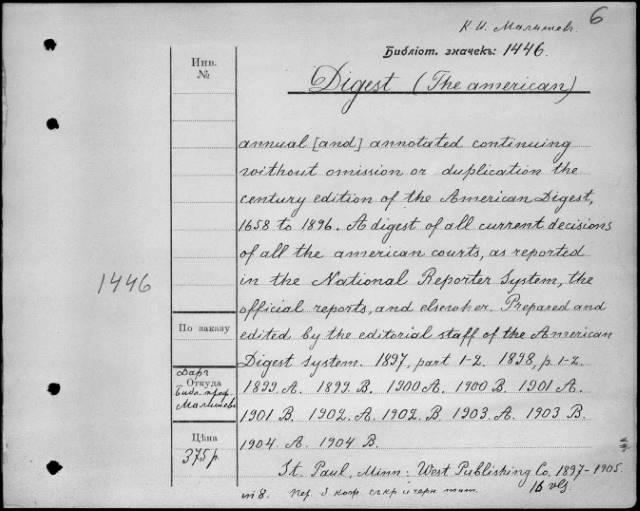 6
К. И. Малышев.
Библіот. значекъ: 1446.
Digest (The american)
Инв.
№
annual [and] annotated continuing
without omission or duplication the
century edition of the American Digest,
1658 to 1896. A digest of all current decisions
of all the american courts, as reported
in the National Reporter System, the
official reports, and elsewher. Prepared and
edited by the editorial staff of the American
Digest system. 1897, part 1-2. 1898, p. 1-2.
1899. A. 1899. B. 1900 A. 1900 B. 1901 A.
1901 B. 1902. A. 1902. B. 1903. A. 1903 B.
1904. A. 1904 B.
St. Paul, Minn: West Publishing Co. 1897-1905.
16 vls.
in 8. Пер.
1446
По заказу
Даръ
Откуда
библ. проф.
Малышева
Цѣна
375 р.